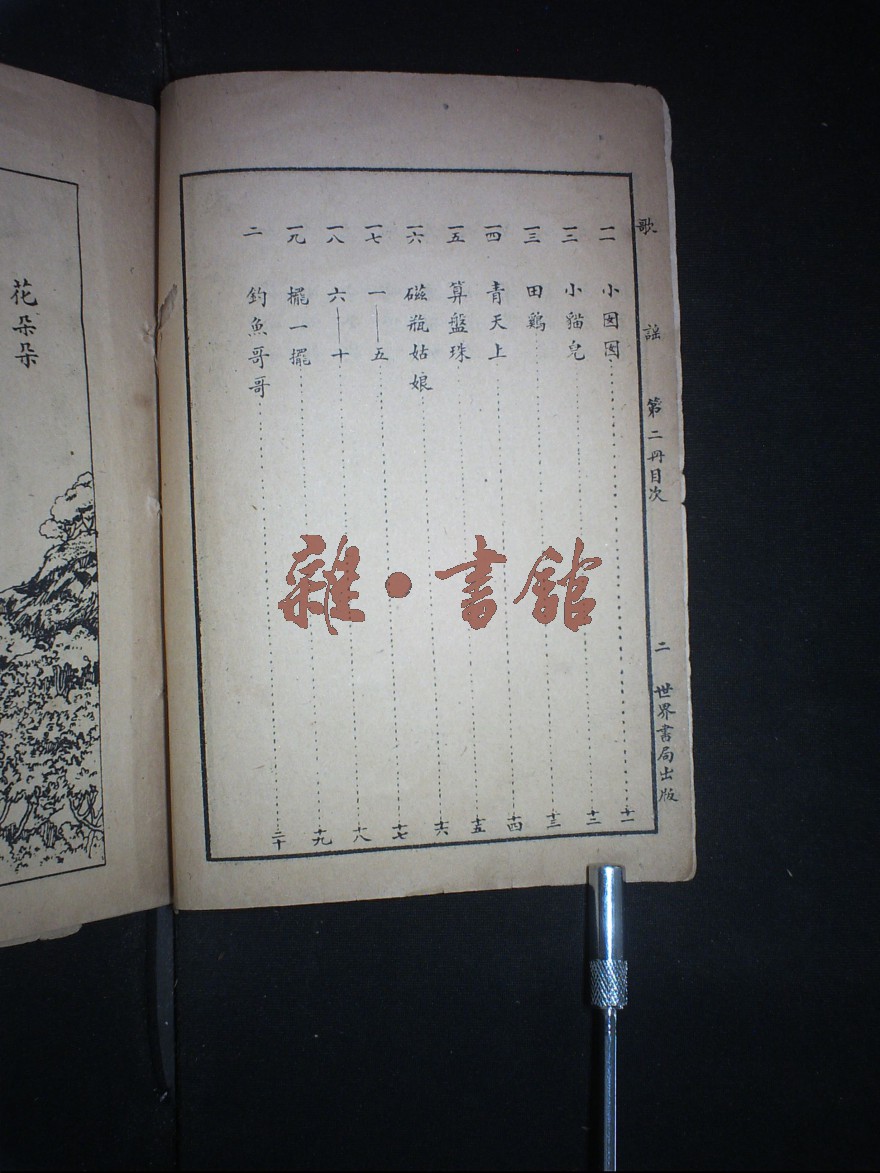 歌謠 第二冊目次 二 世界書局出版
一一 小囡囡……十一
一二 小貓兒……十二
一三 田鷄……十三
一四 青天上……十四
一五 算盤珠……十五
一六 磁瓶姑娘……十六
一七 一——五……十七
一八 六——十……十八
一九 擺一擺……十九
二 釣魚哥哥……二十
花朵朵
雜·書館